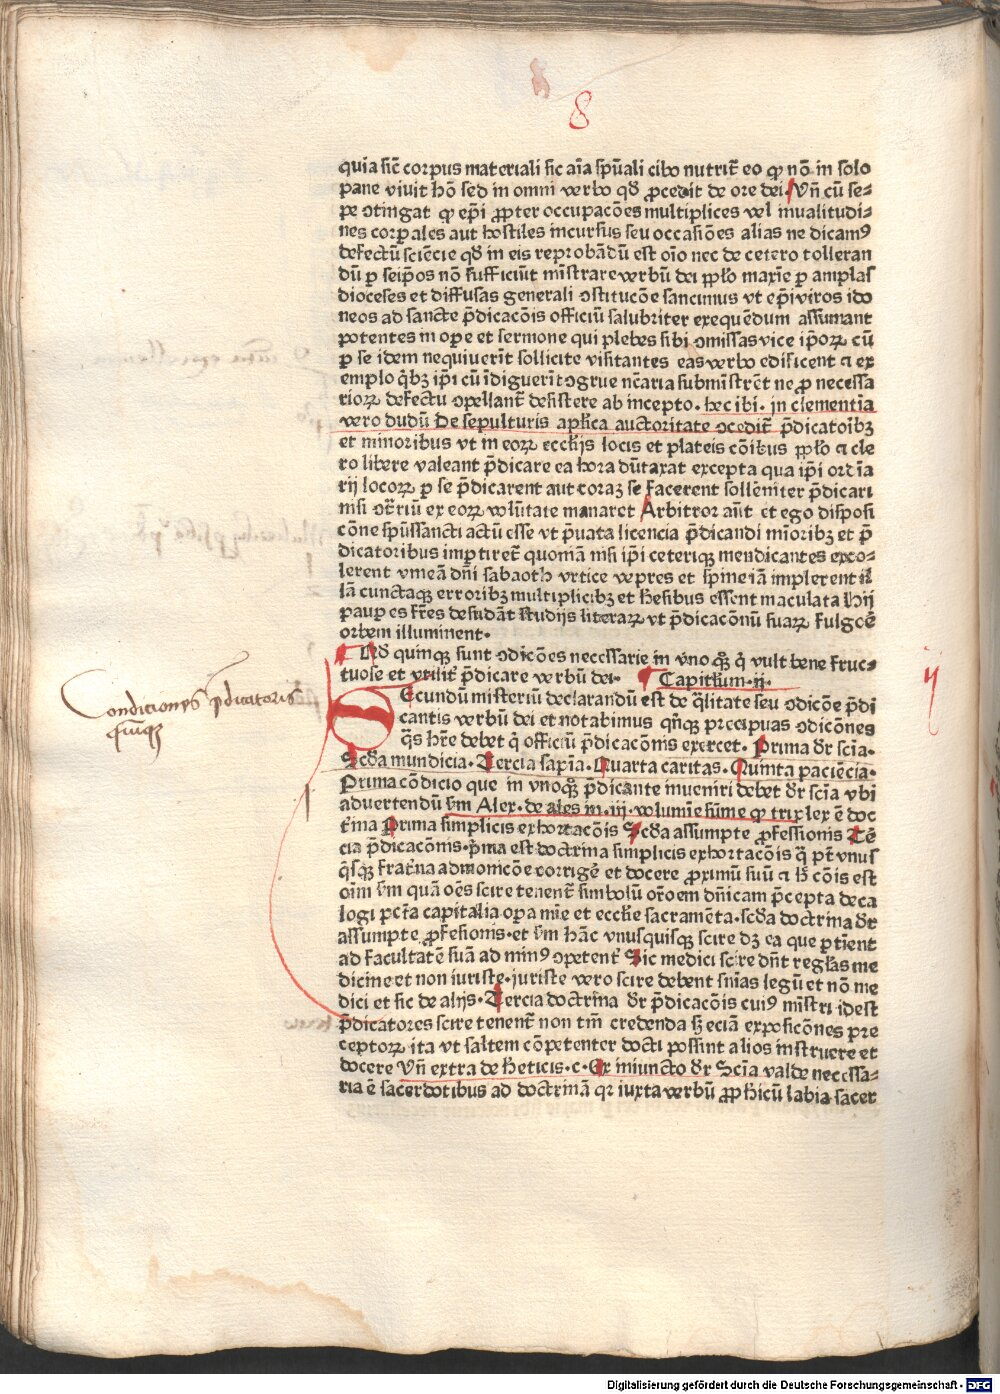 8
quia sic̄ corpus materiali sic aīa sp̄uali cibo nutrit̄ eo ꝙ nō in solo
pane viuit hō sed in omni verbo qḋ ꝓcedit de ore dei. Vn̄ cū se⸗
pe ꝯtingat ꝙ ep̄i ꝓpter occupacōes multiplices vel inualitudi⸗
nes corpales aut hostiles incursus seu occasiōes alias ne dicamꝰ
defectū sciēcie qḋ in eis reprobādū est oīo nec de cetero tolleran
dū p̱ seip̄os nō sufficiūt mīstrare verbū dei pp̄lo maxīe p̱ amplas
dioceses et diffusas generali ꝯstitucōe sancimus vt ep̄i viros ido
neos ad sancte p̄dicacōis officiū salubriter exequēdum assumant
potentes in oꝑe et sermone qui plebes sibi ꝯmissas vice ip̄oꝝ cū
p̱ se idem nequiuerīt sollicite visitantes eas verbo edificent ⁊ ex
emplo qͥbꝫ ip̄i cū īdiguerīt ꝯgrue nc̄aria submīstrēt ne ꝓ necessa
rioꝝ defectu ꝯpellant̄ desistere ab incepto. hec ibi. in clementīa
vero dudū De sepulturis ap̄lica auctoritate ꝯcedit̄ p̄dicatoībꝫ
et minoribus vt in eoꝝ ecclījs locis et plateis cōībus pp̄lo ⁊ cle
ro libere valeant p̄dicare ea hora dūtaxat excepta qua ip̄i ordīa
rij locoꝝ p̱ se p̄dicarent aut coraꝫ se facerent sollēniter p̄dicari
nisi ꝯt̄riū ex eoꝝ volūtate manaret Arbitror aūt et ego disposi
cōne sp̄ussancti actū esse vt p̄uata licencia p̄dicandi mīoribꝫ et p̄
dicatoribus imptiret̄ quoniā nisi ip̄i ceteriqꝫ mendicantes exco⸗
lerent vineā dn̄i sabaoth vrtice vepres et spine iā implerent il
lā cunctaqꝫ erroribꝫ multiplicibꝫ et h̄esibus essent maculata hij
paup̱es fr̄es desudāt studijs literaꝝ vt p̄dicacōnū suaꝝ fulgcē
orbem illuminent.
Ad quinqꝫ sunt ꝯdicōes necessarie in vnoqͦꝫ qͥ vult bene fruc⸗
tuose et vtilit̄ p̄dicare verbū dei. Capitłum. ij.
Secundū misteriū declarandū est de qͣlitate seu ꝯdicōe p̄di
cantis verbū dei et notabimus qͥnqꝫ precipuas ꝯdicōnes
qͣs hr̄e debet qͥ officiū p̄dicacōnis exercet. Prima dr̄ scīa.
Scḋa mundicia. Tercia sapīa. Quarta caritas. Quinta paciēcia.
Prima cōdicio que in vnoqͦꝫ p̄dicante inueniri debet dr̄ scīa vbi
aduertendū sm̄ Alex. de ales in. iij. volumīe sūme ꝙ triplex ē doc
t̄ina Prima simplicis exhortacōis Scḋa assumpte ꝓfessionis Tē
cia p̄dicacōnis. p̄ma est doctrina simplicis exhortacōis qͣ pt̄ vnus
qͥsqꝫ frat̄na admonicōe corrigē et docere ꝓximū suū ⁊ h̄ cōis est
oīm sm̄ quā oēs scire tenent̄ simbolū or̄oem dn̄icam p̄cepta deca
logi pct̄a capitalia oꝑa mīe et eccl̄ie sacramēta. scḋa doctrina dr̄
assumpte ꝓfessionis. et sm̄ hāc vnusquisqꝫ scire dꝫ ea que p̱tīent
ad facultatē suā ad minꝰ ꝯpetent̄ Sic medici scire dn̄t regłas me
dicine et non iuriste. juriste vero scire debent snīas legū et nō me
dici et sic de alijs. Tercia doctrīna dr̄ p̄dicacōis cuiꝰ mīstri idest
p̄dicatores scire tenent̄ non tm̄ credenda sꝫ eciā exposicōnes pre
ceptoꝝ ita vt saltem cōpetenter docti possint alios instruere et
docere Vn̄ extra de h̄eticis. c. Ex iniuncto dr̄ Scīa valde necessa⸗
ria ē sacerdotibus ad doctrīnā qr iuxta verbū ꝓph̄icū labia sacer
Conditiones p̄dicatoris
quinqꝫ
ij
Digitalisierung gefördert durch die Deutsche Forschungsgemeinschaft - DFG